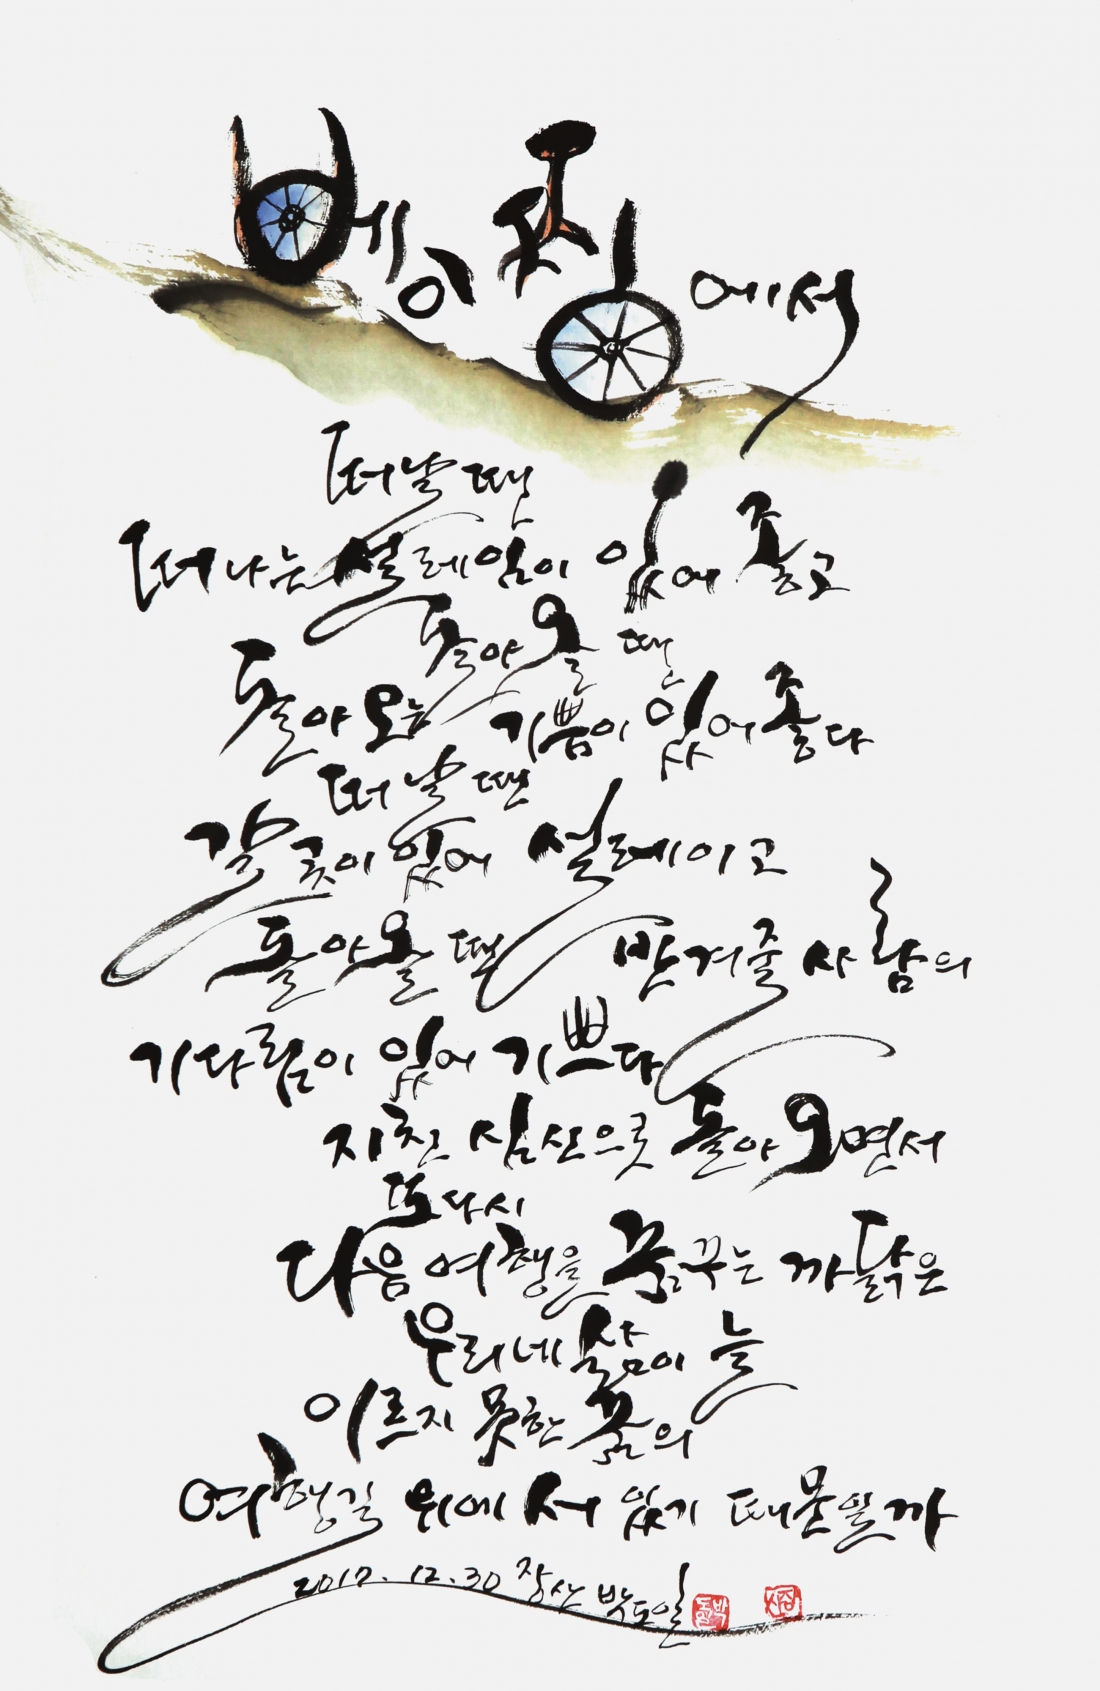 베이징에서
떠날 땐
떠나는 설레임이 있어 좋고
돌아올 땐
돌아오는 기쁨이 있어 좋다
떠날 땐
갈 곳이 있어 설레이고
돌아올 땐 반겨줄 사람의
기다림이 있어 기쁘다
지친 심신으로 돌아오면서
또다시
다음 여행을 꿈꾸는 까닭은
우리네 삶이 늘
이르지 못한 꿈의
여행길 위에 서 있기 때문일까
2017. 12. 30 장산 박도일